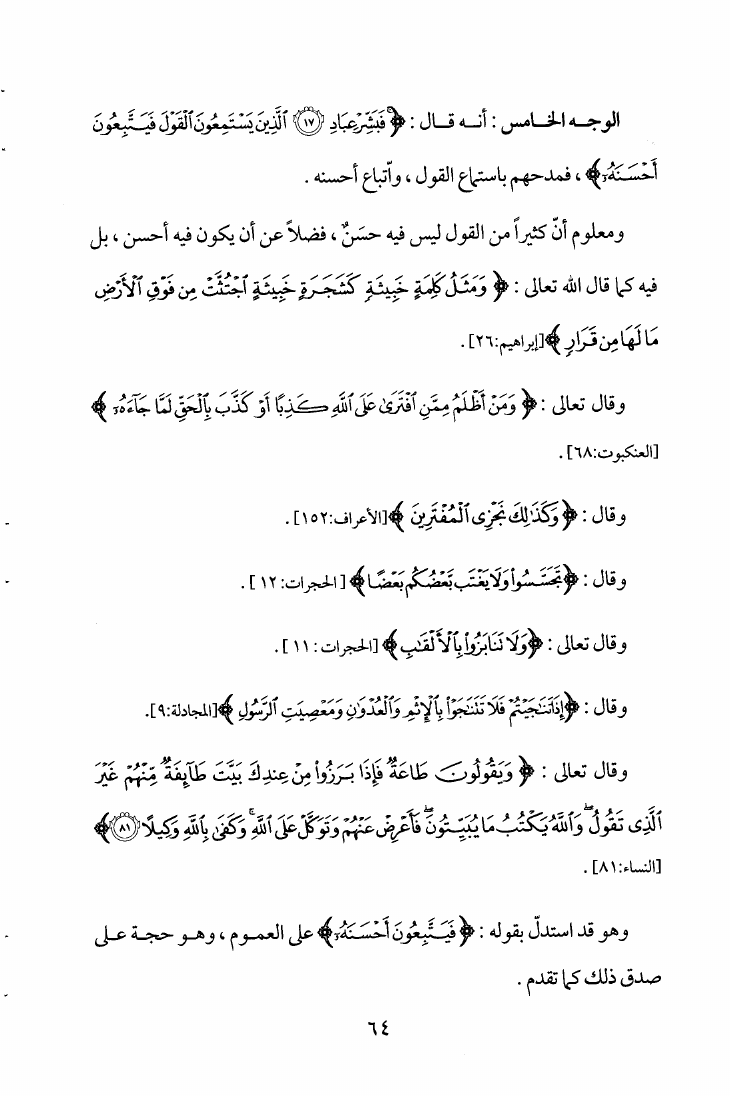 الوجـه الخـامس : أنـه قـال : ﴿ فَبَشِّرْ عِبَادِ ۝١٧ ٱلَّذِينَ يَسْتَمِعُونَ ٱلْقَوْلَ فَيَتَّبِعُونَ
أَحْسَنَهُۥٓ ﴾ ، فمدحهم باستماع القول ، واتّباع أحسنه .
ومعلوم أنّ كثيراً من القول ليس فيه حسَنٌ ، فضلاً عن أن يكون فيه أحسن ، بل
فيه كما قال الله تعالى : ﴿ وَمَثَلُ كَلِمَةٍ خَبِيثَةٍ كَشَجَرَةٍ خَبِيثَةٍ ٱجْتُثَّتْ مِن فَوْقِ ٱلْأَرْضِ
مَا لَهَا مِن قَرَارٍ ﴾[إبراهيم:٢٦] .
وقال تعالى : ﴿ وَمَنْ أَظْلَمُ مِمَّنِ ٱفْتَرَىٰ عَلَى ٱللَّهِ كَذِبًا أَوْ كَذَّبَ بِٱلْحَقِّ لَمَّا جَآءَهُۥٓ ﴾
[العنكبوت:٦٨] .
وقال : ﴿ وَكَذَٰلِكَ نَجْزِى ٱلْمُفْتَرِينَ ﴾[الأعراف:١٥٢] .
وقال : ﴿ تَجَسَّسُوا۟ وَلَا يَغْتَب بَّعْضُكُم بَعْضًا ﴾ [ الحجرات: ١٢ ] .
وقال تعالى : ﴿ وَلَا تَنَابَزُوا۟ بِٱلْأَلْقَـٰبِ ﴾ [الحجرات: ١١ ] .
وقال : ﴿ إِذَا تَنَـٰجَيْتُمْ فَلَا تَتَنَـٰجَوْا۟ بِٱلْإِثْمِ وَٱلْعُدْوَٰنِ وَمَعْصِيَتِ ٱلرَّسُولِ ﴾[المجادلة:٩].
وقال تعالى : ﴿ وَيَقُولُونَ طَاعَةٌ فَإِذَا بَرَزُوا۟ مِنْ عِندِكَ بَيَّتَ طَآئِفَةٌ مِّنْهُمْ غَيْرَ
ٱلَّذِى تَقُولُ ۖ وَٱللَّهُ يَكْتُبُ مَا يُبَيِّتُونَ ۖ فَأَعْرِضْ عَنْهُمْ وَتَوَكَّلْ عَلَى ٱللَّهِ ۚ وَكَفَىٰ بِٱللَّهِ وَكِيلًا ۝٨١ ﴾
[النساء:٨١] .
وهو قد استدلّ بقوله : ﴿ فَيَتَّبِعُونَ أَحْسَنَهُۥٓ ﴾ على العمـوم ، وهـو حجـة عـلى
صدق ذلك كما تقدم .
٦٤